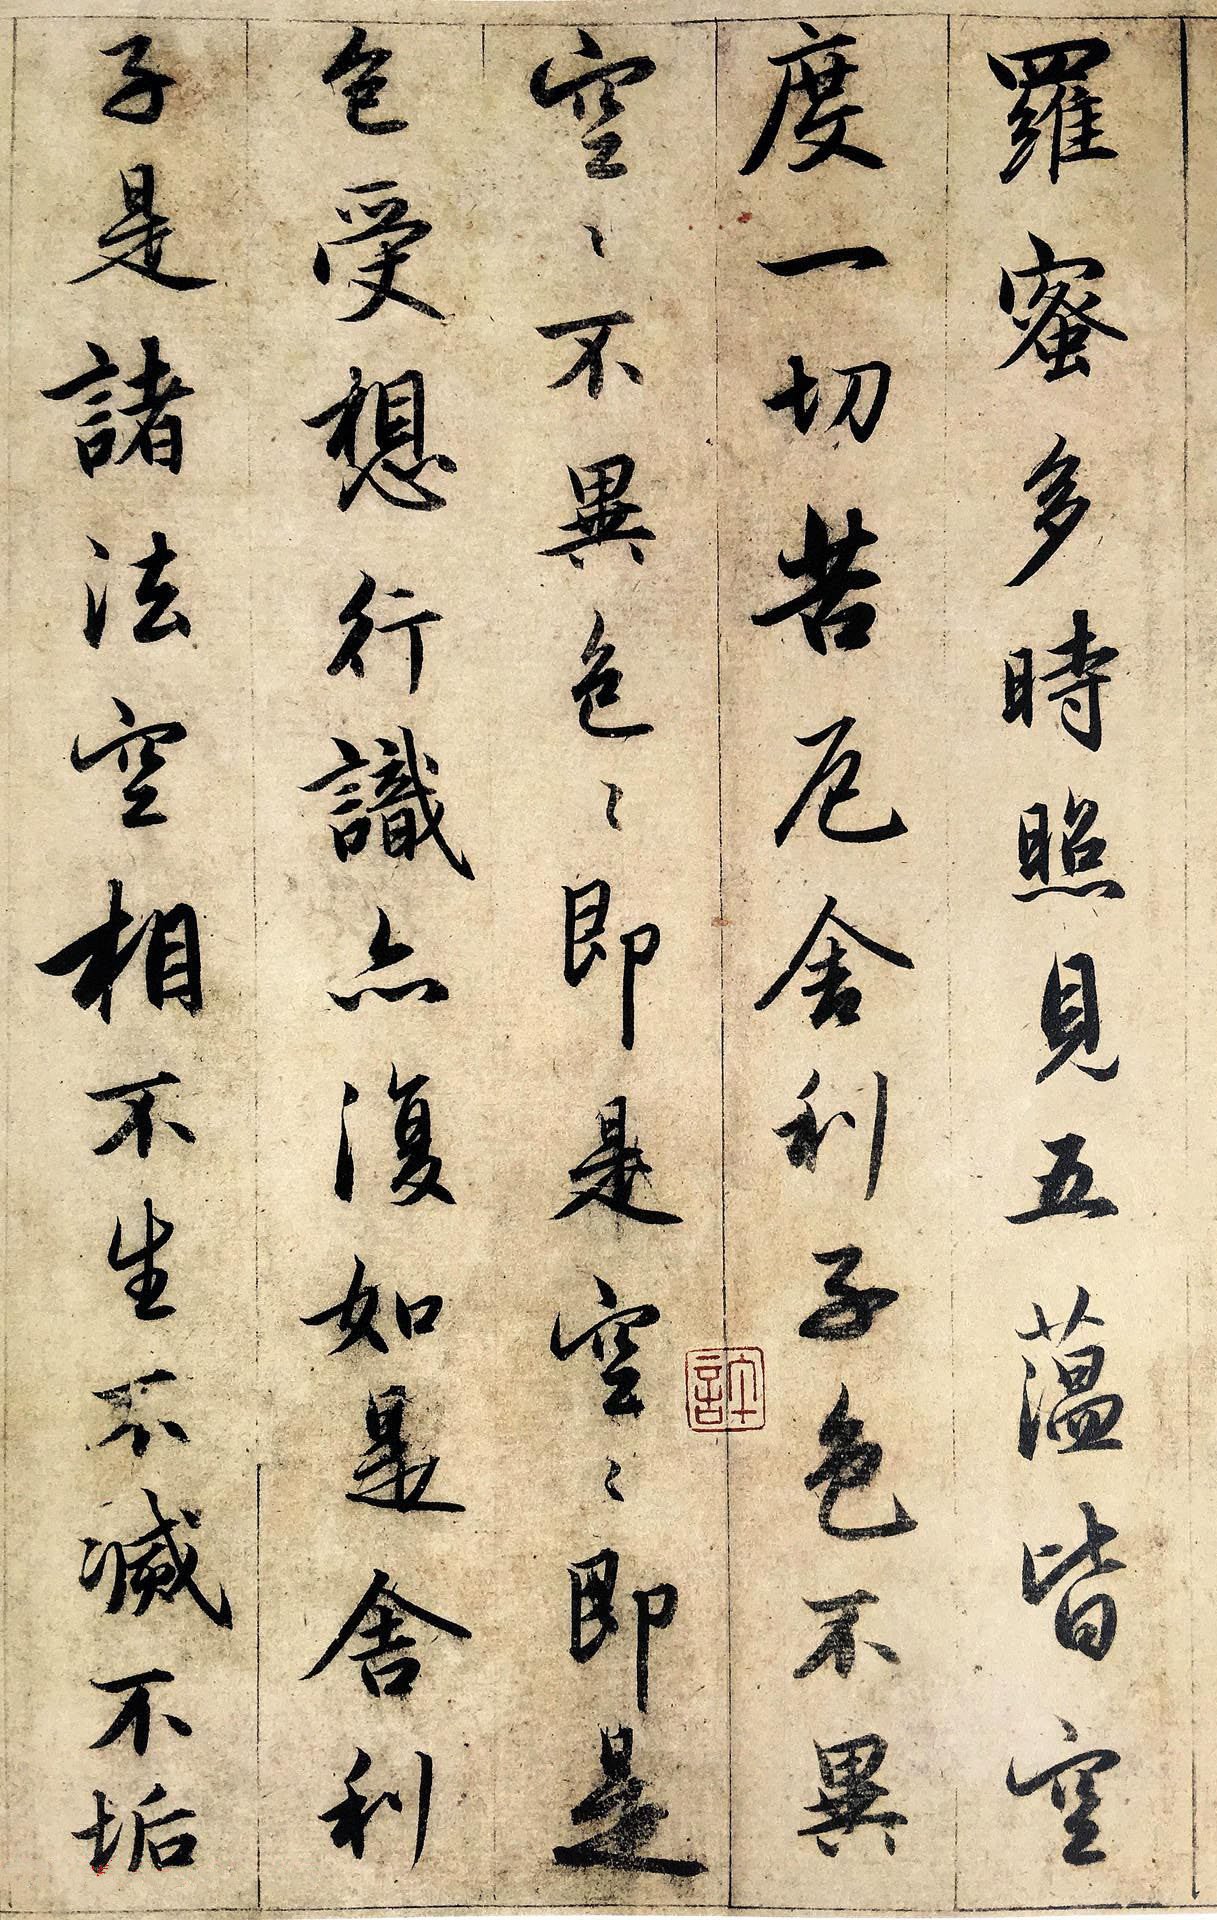 羅蜜多時照見五薀皆空
度一切苦厄舍利子色不異
空〻不異色〻即是空〻即是
色受想行識亦復如是舍利
子是諸法空相不生不滅不垢